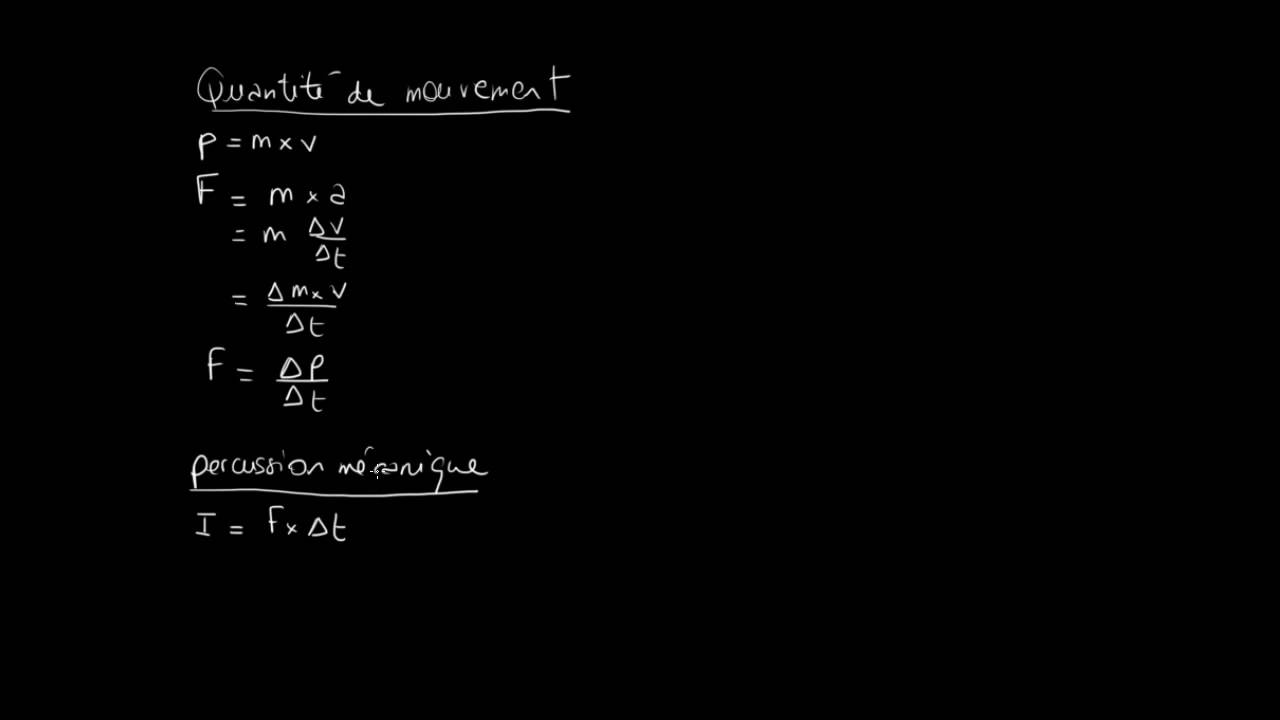 Quantité de mouvement
p = m × v
F = m × a
= m Δv/Δt
= Δ m × v/Δt
F = Δp/Δt
percussion mécanique
I = F × Δt